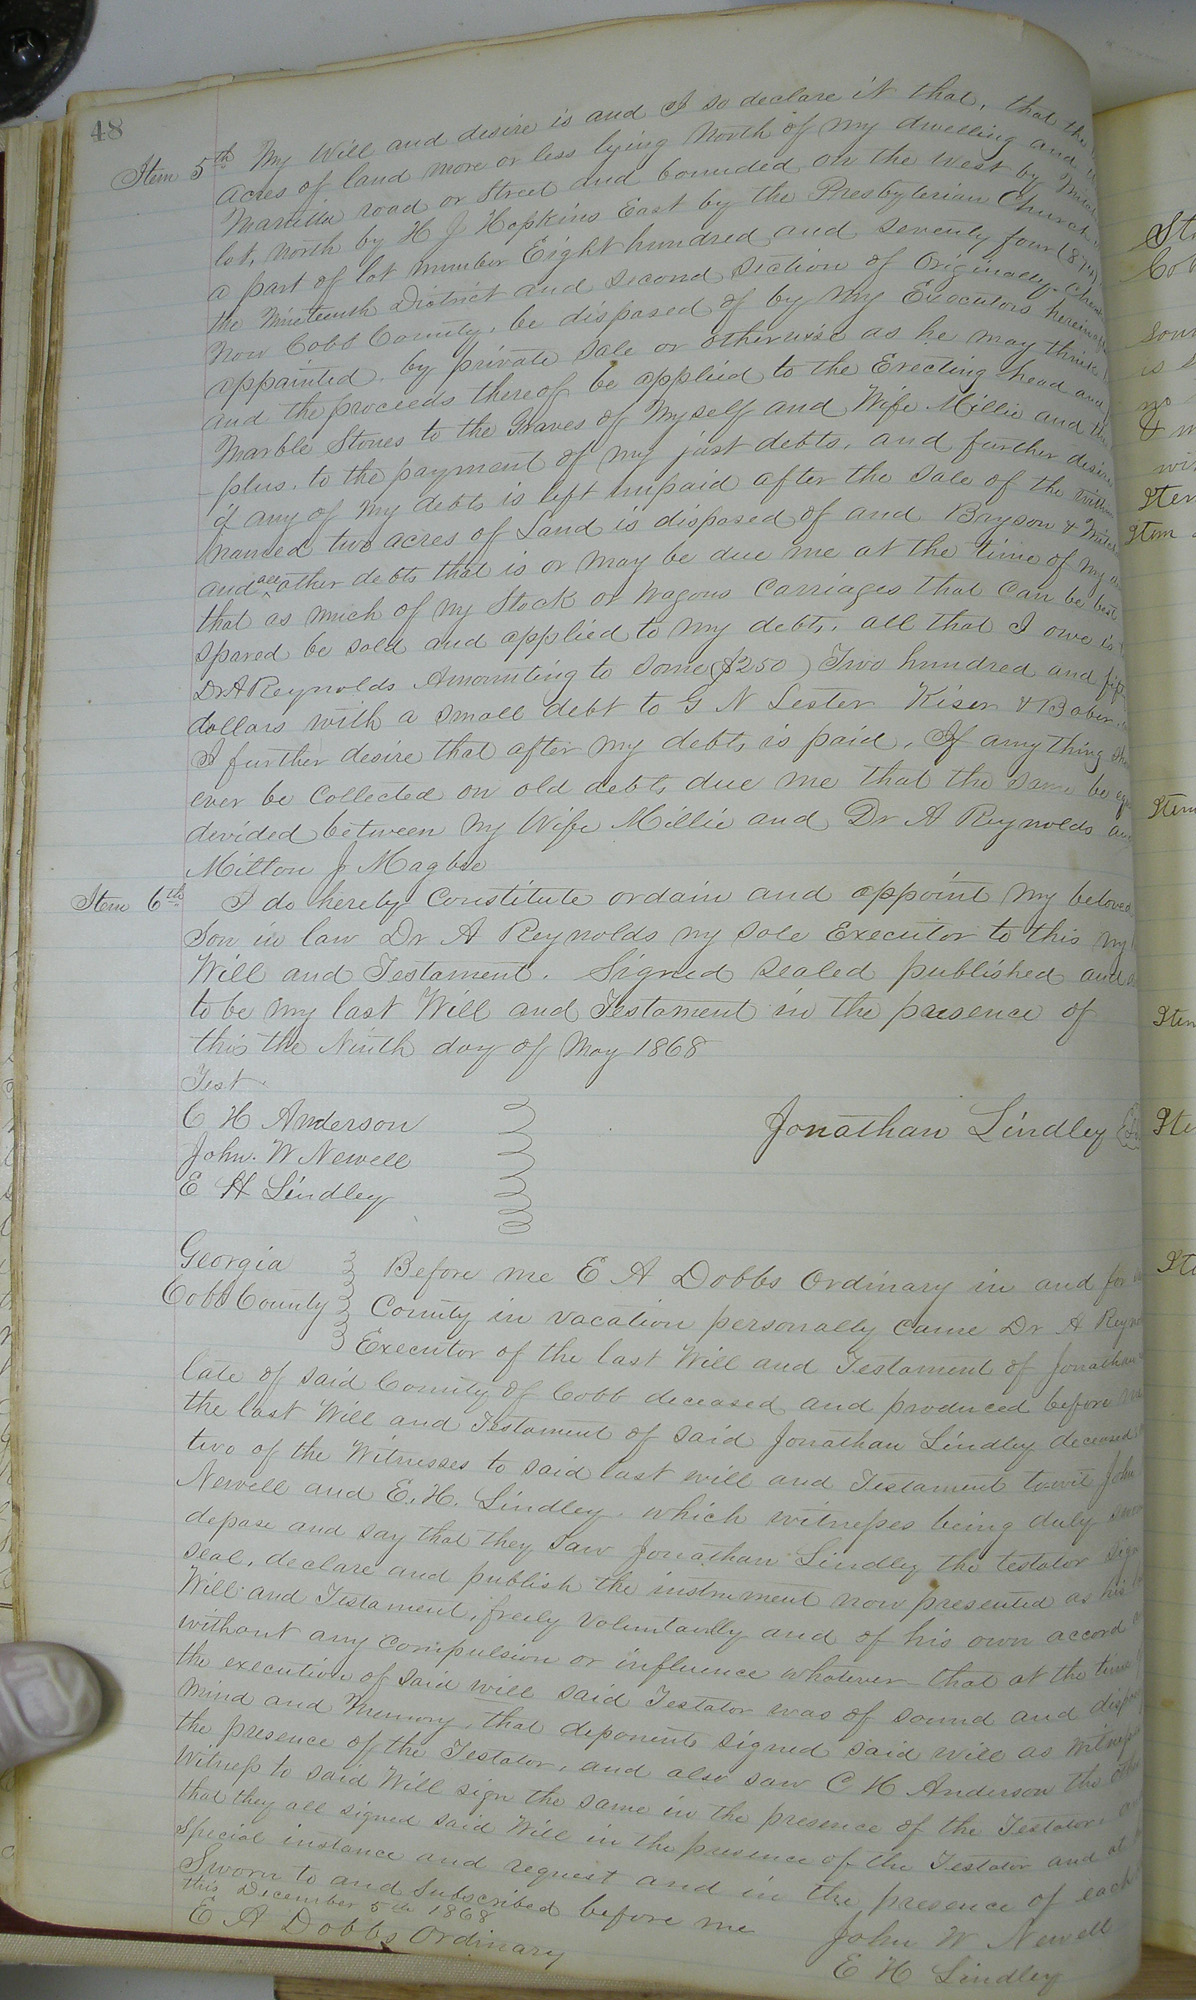 48
Item 5th My Will and desire is and I so declare it that, that the
acres of land more or less lying North of my dwelling and
Marietta road or Street and bounded on the West by
lot, North by H J Hopkins East by the Presbyterian Church
a part of lot number Eight hundred and seventy four (874)
the Nineteenth District and second section of Originally
now Cobb County, be disposed of by my Executors
appainted, by private sale or otherwise as he may think
and the proceeds thereof be applied to the Erecting head and
Marble Stones to the Graves of Myself and Wife Millie and the
plus, to the payment of my just debts, and further desire
if any of my debts is left unpaid after the sale of the
named two acres of Land is disposed of and Bryson &
and all other debts that is or may be due me at the time of my
that as much of my Stock or Wagons Carriages that can be best
spared be sold and applied to my debts, all that I owe is
Dr A Reynolds Amounting to some ($250) Two hundred and
dollars with a small debt to G N Lester Kiser &
I further desire that after my debts is paid, If any thing
ever be Collected on old debts due me that the same be
devided between my Wife Millie and Dr A Reynolds
Milton J Magbee
Item 6th I do hereby Constitute ordain and appoint my beloved
Son in law Dr A Reynolds my sole Executor to this my
Will and Testament. Signed sealed published and
to be my last Will and Testament in the presence of
this the Ninth day of May 1868
Test
C H Anderson
Jonathan Lindley
John. W Newell
E H Lindley
Georgia
Cobb County
Before me E A Dobbs Ordinary in and for
County in vacation personally came Dr A
Executor of the last Will and Testament of Jonathan
late of said County of Cobb deceased and produced before
the last Will and Testament of said Jonathan Lindley deceased
two of the Witnesses to said last will and Testament towit John
Newell and E. H. Lindley, which witnesses being duly
depose and say that they saw Jonathan Lindley the testator
seal, declare and publish the instrument now presented as his
Will and Testament, freely voluntarily and of his own accord
without any compulsion or influence whatever - that at the time
the execution of said will said Testator was of sound and
mind and Memory, that deponents signed said will as Witnesses
the presence of the Testator, and also saw C H Anderson the other
Witness to said Will sign the same in the presence of the Testator,
that they all signed said Will in the presence of the Testator and at
special instance and request and in the presence of each
Sworn to and Subscribed before me
this December 5th 1868
John W Newell
E A Dobbs Ordinary
E H Lindley
Item
Item
Item